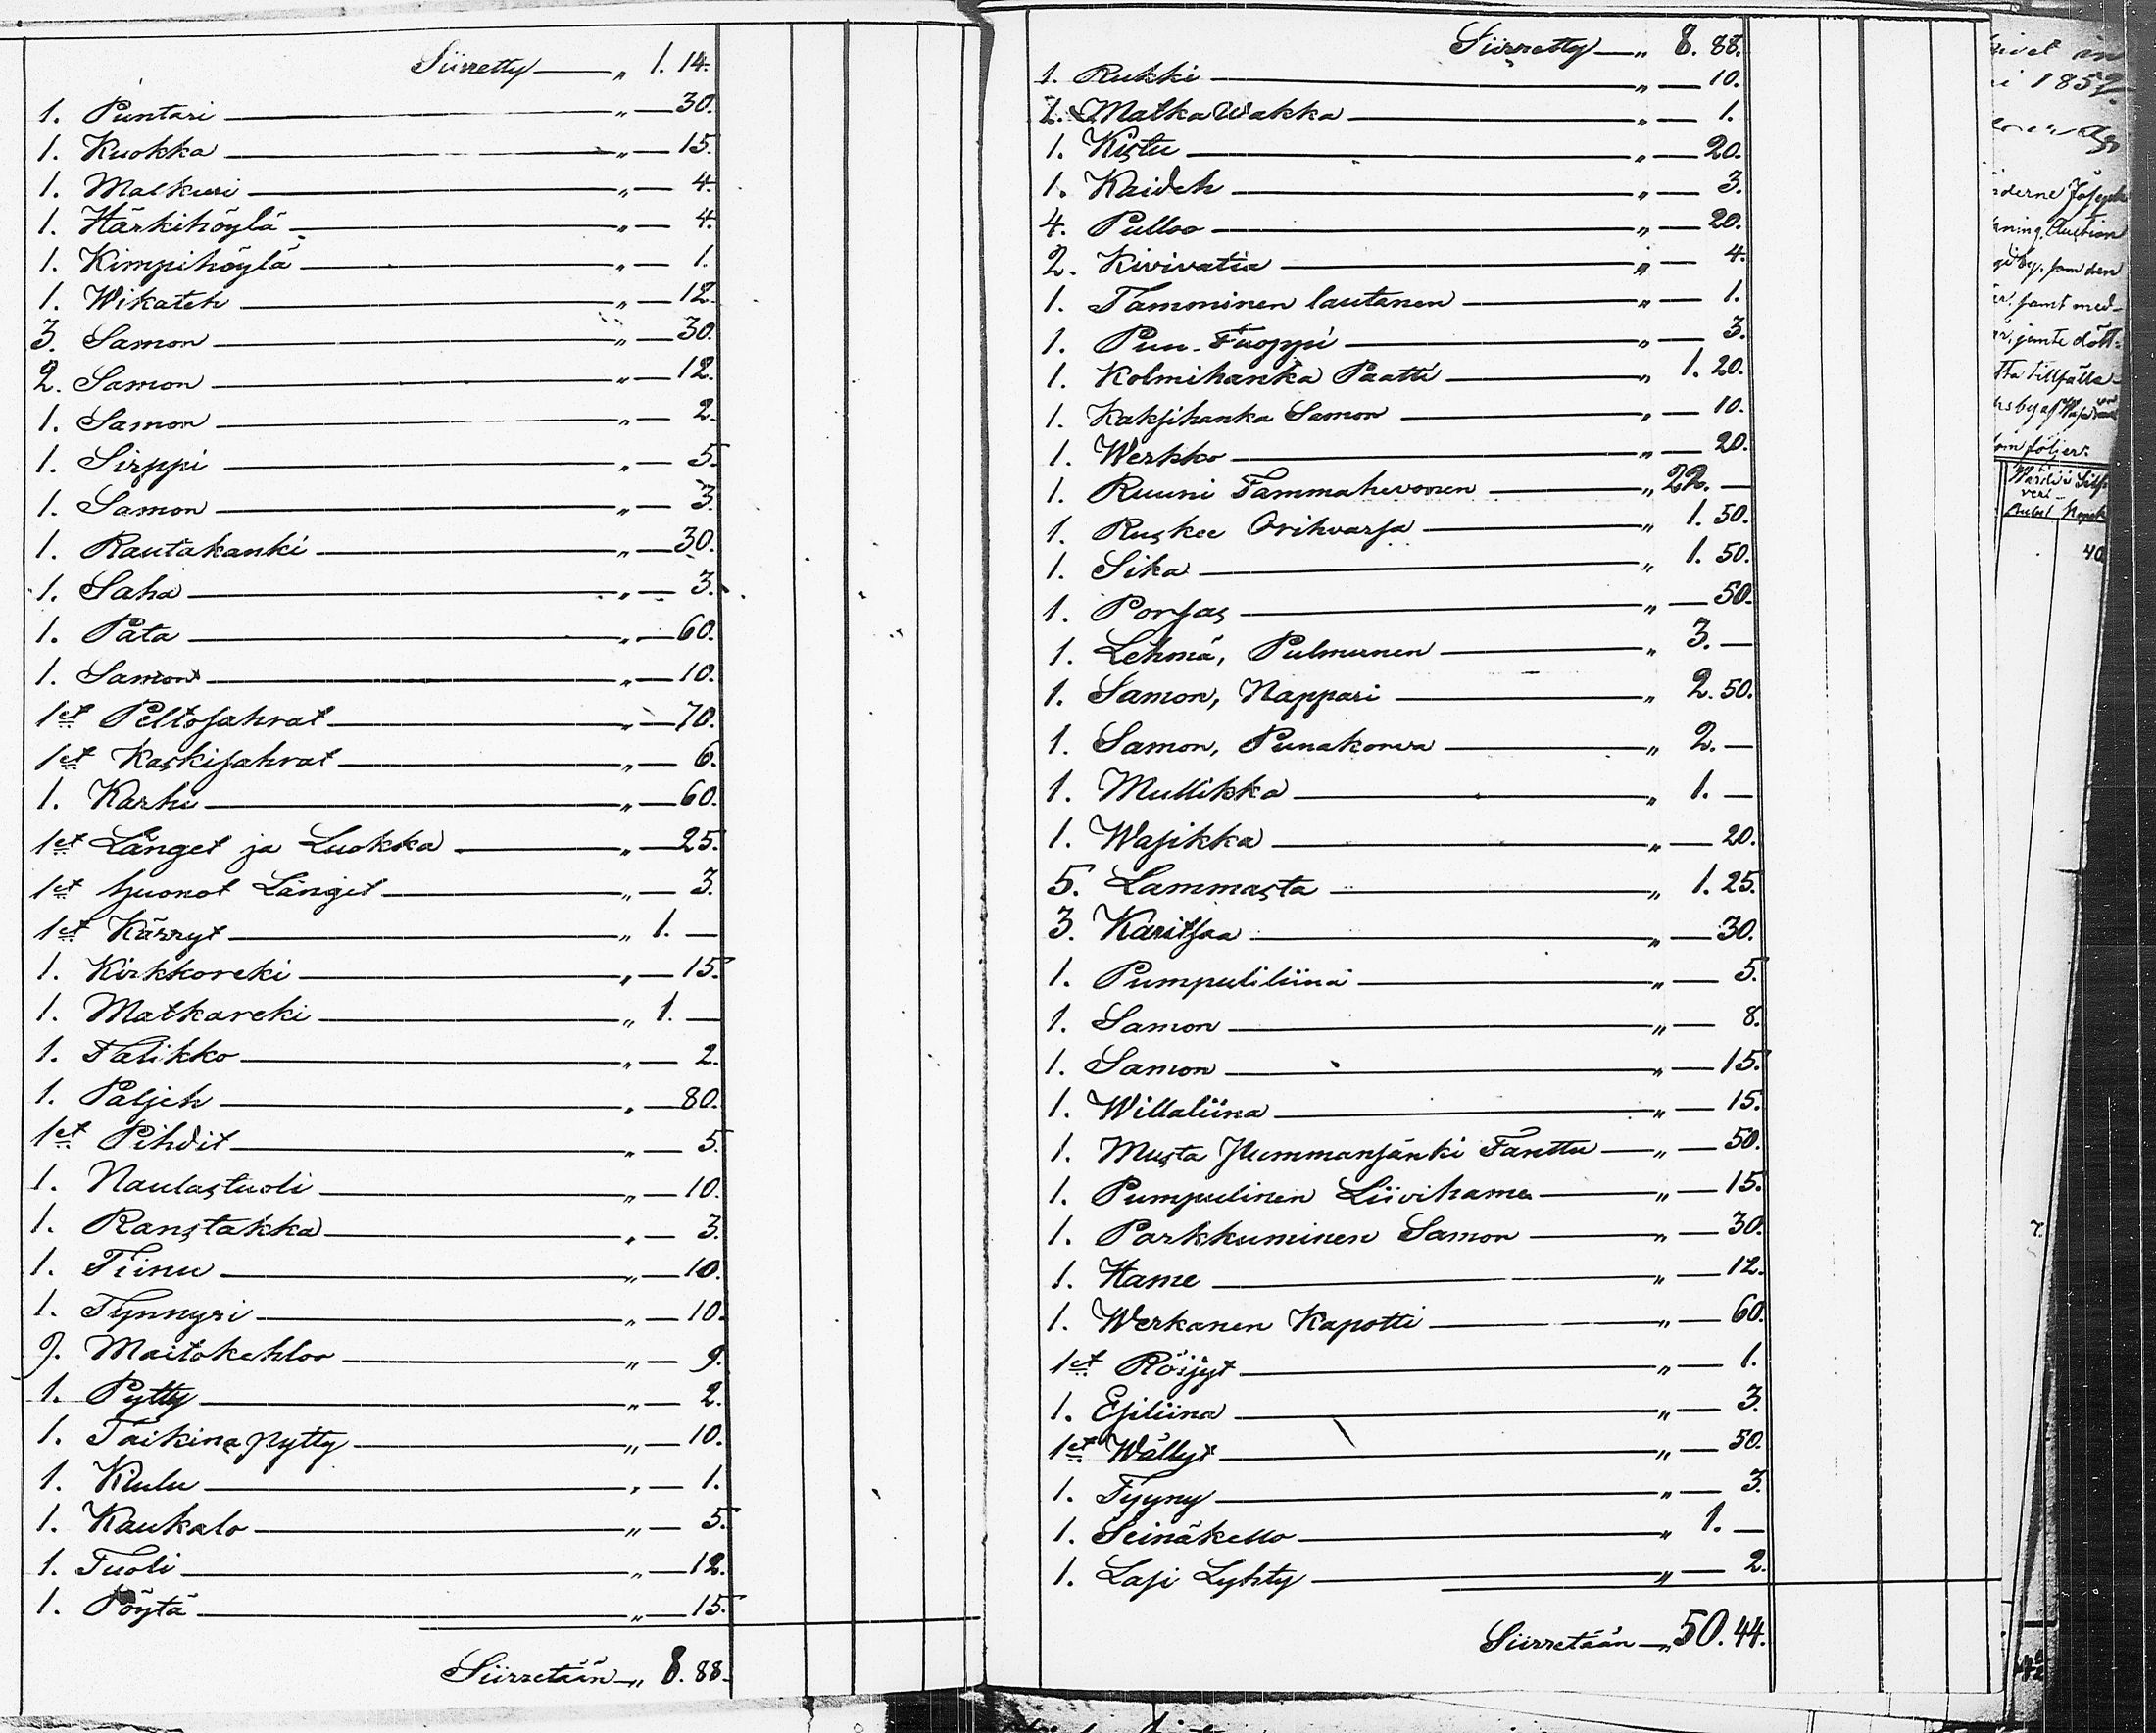 Siirretty — „ 1. 14.
1. Puntari — „ — 30.
1. Kuokka — „ — 15.
1. Matkuri — „ — 4.
1. Härkihöylä — „ — 4.
1. Kimpihöylä — „ — 1.
1. Wikateh — „ — 12.
3. Samon — „ — 30.
2. Samon — „ — 12.
1. Samon — „ — 2.
1. Sirppi — „ — 5.
1. Samon — „ — 3.
1. Rautakanki — „ — 30.
1. Saha — „ — 3.
1. Pata — „ — 60.
1. Samon — „ — 10.
1et Peltosahrat — „ — 70.
1et Kaskisahrat — „ — 6.
1. Karhi — „ — 60.
1et Länget ja Luokka — „ — 25.
1et huonot Länget — „ — 3.
1et Kärryt — „ 1. —
1. Kirkkoreki — „ — 15.
1. Matkareki — „ 1. —
1. Talikko — „ — 2.
1. Paljeh — „ — 80.
1et Pihdit — „ — 5.
1. Naulastuoli — „ — 10.
1. Ranstakka — „ — 3.
1. Tiinu — „ — 10.
1. Tynnyri — „ — 10.
9. Maitokehloo — „ — 9.
1. Pytty — „ — 2.
1. Taikina pytty — „ — 10.
1. Kiulu — „ — 1.
1. Kaukalo — „ — 5.
1. Tuoli — „ — 12.
1. Pöytä — „ — 15.
Siirretään — „ 8. 88.
Siirretty — „ 8. 88.
1. Rukki — „ — 10.
1. Matka Wakka — „ — 1.
1. Kistu — „ — 20.
1. Kaideh — „ — 3.
4. Pulloo — „ — 20.
2. Kivivatia — „ — 4.
1. Tamoninen lautanen — „ — 1.
1. Puu-Tuoppi — „ — 3.
1. Kolmihanka Paatti — „ 1. 20.
1. Kaksihanka Samon — „ — 10.
1. Werkko — „ — 20.
1. Ruuni Tammahevoinen — „ 22. —
1. Ruskee Orihvarsa — „ 1. 50.
1. Sika — „ 1. 50.
1. Porsas — „ — 50.
1. Lehmä, Pulmunen — „ 3. —
1. Samon, Nappari — „ 2. 50.
1. Samon, Punakorva — „ 2. —
1. Mullikka — „ 1. —
1. Wasikka — „ — 20.
5. Lammasta — „ 1. 25.
3. Karitsaa — „ — 30.
1. Pumpuliliina — „ — 5.
1. Samon — „ — 8.
1. Samon — „ — 15.
1. Willaliina — „ — 15.
1. Musta Hummansänki Tanttu — „ — 50.
1. Pumpulinen Liivihame — „ — 15.
1. Parkkuminen Samon — „ — 30.
1. Hame — „ — 12.
1. Werkanen Kapotti — „ — 60.
1et Röijyt — „ — 1.
1. Esiliina — „ — 3.
1et Wällyt — „ — 50.
1. Tyyny — „ — 3.
1. Seinäkello — „ 1. —
1. Lasi Lyhty — „ — 2.
Siirretään — „ 50. 44.
i 1852.
Auction
som den
samt med-
jemte dött-
tillfälle
som följer:
40
7.